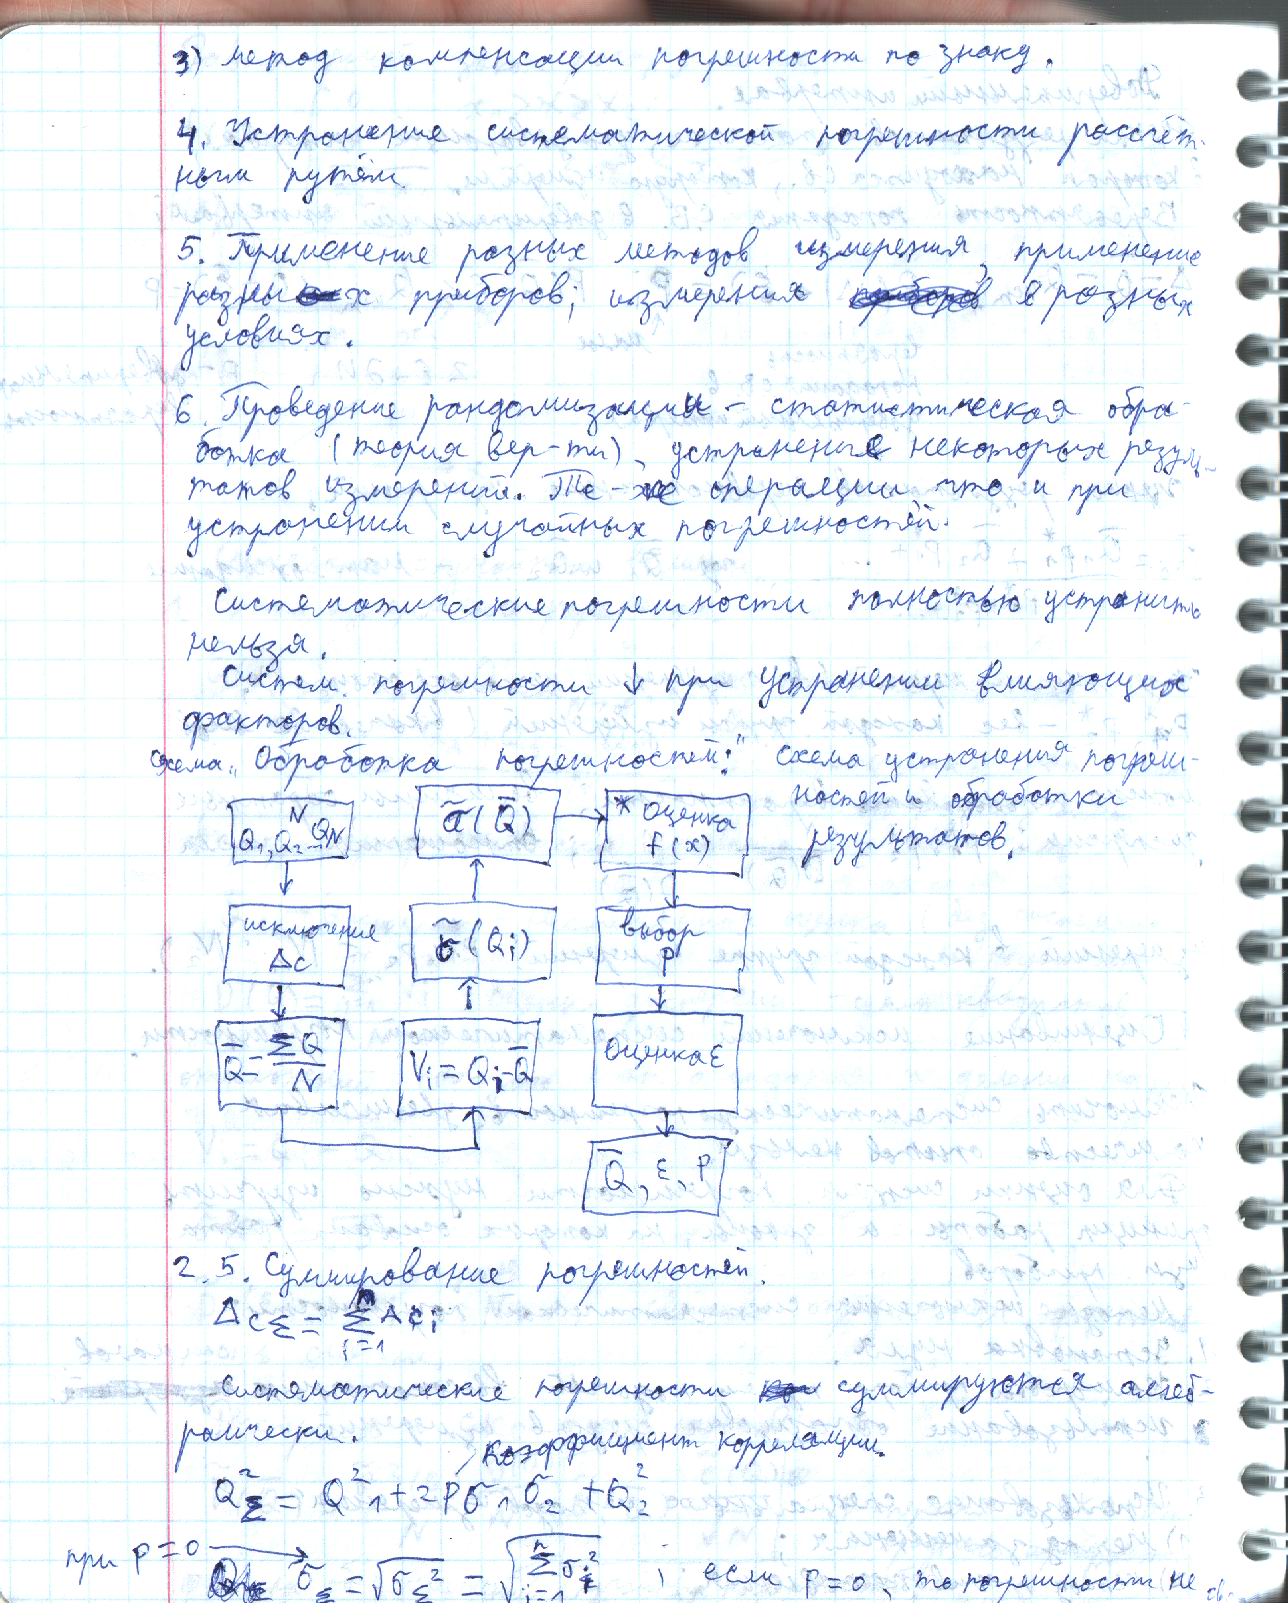 3) Метод компенсации погрешности по знаку.
4. Устранение систематической погрешности рассчёт-
ным путём.
5. Применение разных методов измерения, применение
разных приборов; измерения в разных
условиях.
6. Проведение рандомизации – статистическая обра-
ботка (теория вер-ти), устранение некоторых резуль-
татов измерений. Те-же операции что и при
устранении случайных погрешностей.
Систематические погрешности полностью устранить
нельзя.
Систем. погрешности ↓ при устранении влияющих
факторов.
Схема „Обработка погрешностей:" схема устранения погреш-
ностей и обработки
результатов.
N
Q₁, Q₂ – Q_N
исключение
Δc
Q̄ = ΣQ / N
Vᵢ = Qᵢ – Q̄
σ̃ (Qᵢ)
σ̃ (Q̄)
* Оценка
f(x)
выбор
P
Оценка ε
Q̄, ε, P
2.5. Суммирование погрешностей.
Δc_Σ = Σⁿᵢ₌₁ Δcᵢ
Систематические погрешности суммируются алгеб-
раически.
Коэффициент корреляции.
Q²_Σ = Q²₁ + 2ρσ₁σ₂ + Q²₂
при ρ=0 → σ_Σ = √σ_Σ² = √Σⁿᵢ₌₁ σᵢ² ; если ρ=0, то погрешности не